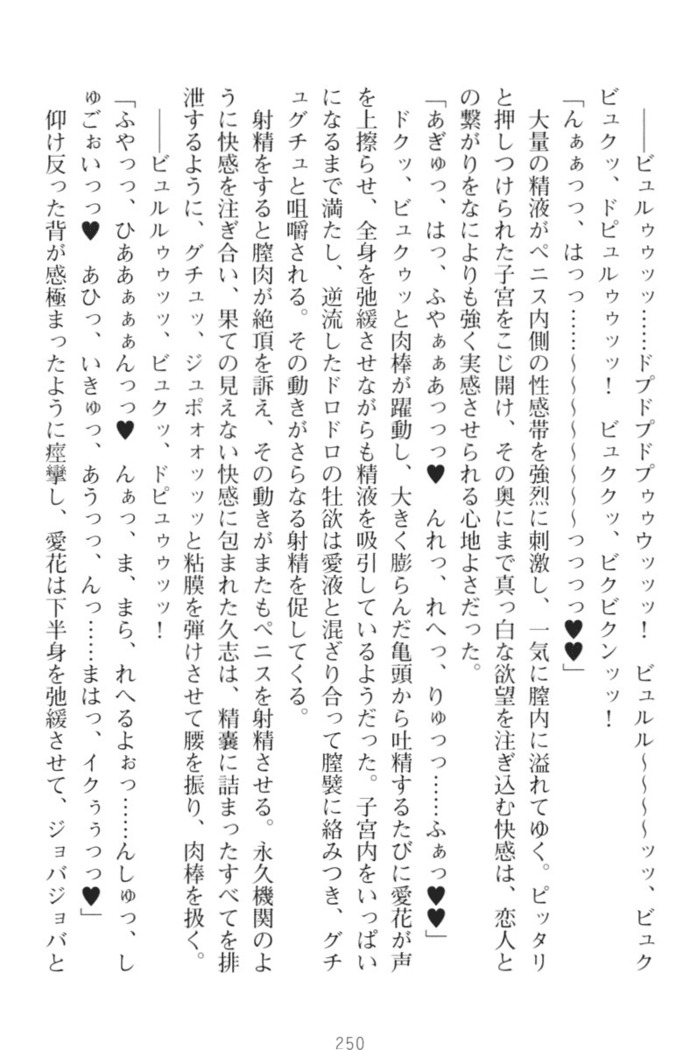 ――ビュルゥゥッッ……ドプドプドプゥゥウッッッ！　ビュルル～～～～ッッ、ビュク
ビュクッ、ドピュルゥゥッッ！　ビュククッ、ビクビクンッッ！
「んぁぁっっ、はっっ……～～～～～～～っっっっ♥♥」
　大量の精液がペニス内側の性感帯を強烈に刺激し、一気に膣内に溢れてゆく。ピッタリ
と押しつけられた子宮をこじ開け、その奥にまで真っ白な欲望を注ぎ込む快感は、恋人と
の繋がりをなによりも強く実感させられる心地よさだった。
「あぎゅっ、はっ、ふやぁぁあっっっ♥　んれっ、れへっ、りゅっっ……ふぁっ♥♥」
　ドクッ、ビュクゥッと肉棒が躍動し、大きく膨らんだ亀頭から吐精するたびに愛花が声
を上擦らせ、全身を弛緩させながらも精液を吸引しているようだった。子宮内をいっぱい
になるまで満たし、逆流したドロドロの牡欲は愛液と混ざり合って膣襞に絡みつき、グチ
ュグチュと咀嚼される。その動きがさらなる射精を促してくる。
　射精をすると膣肉が絶頂を訴え、その動きがまたもペニスを射精させる。永久機関のよ
うに快感を注ぎ合い、果ての見えない快感に包まれた久志は、精嚢に詰まったすべてを排
泄するように、グチュッ、ジュポォォッッッと粘膜を弾けさせて腰を振り、肉棒を扱く。
――ビュルルゥゥッッ、ビュクッ、ドピュゥゥッッ！
「ふやっっ、ひああぁぁぁんっっ♥　んぁっ、ま、まら、れへるよぉっ……んしゅっ、し
ゅごぉいっっ♥　あひっ、いきゅっ、あうっっ、んっ……まはっ、イクぅぅっっ♥」
　仰け反った背が感極まったように痙攣し、愛花は下半身を弛緩させて、ジョバジョバと
250